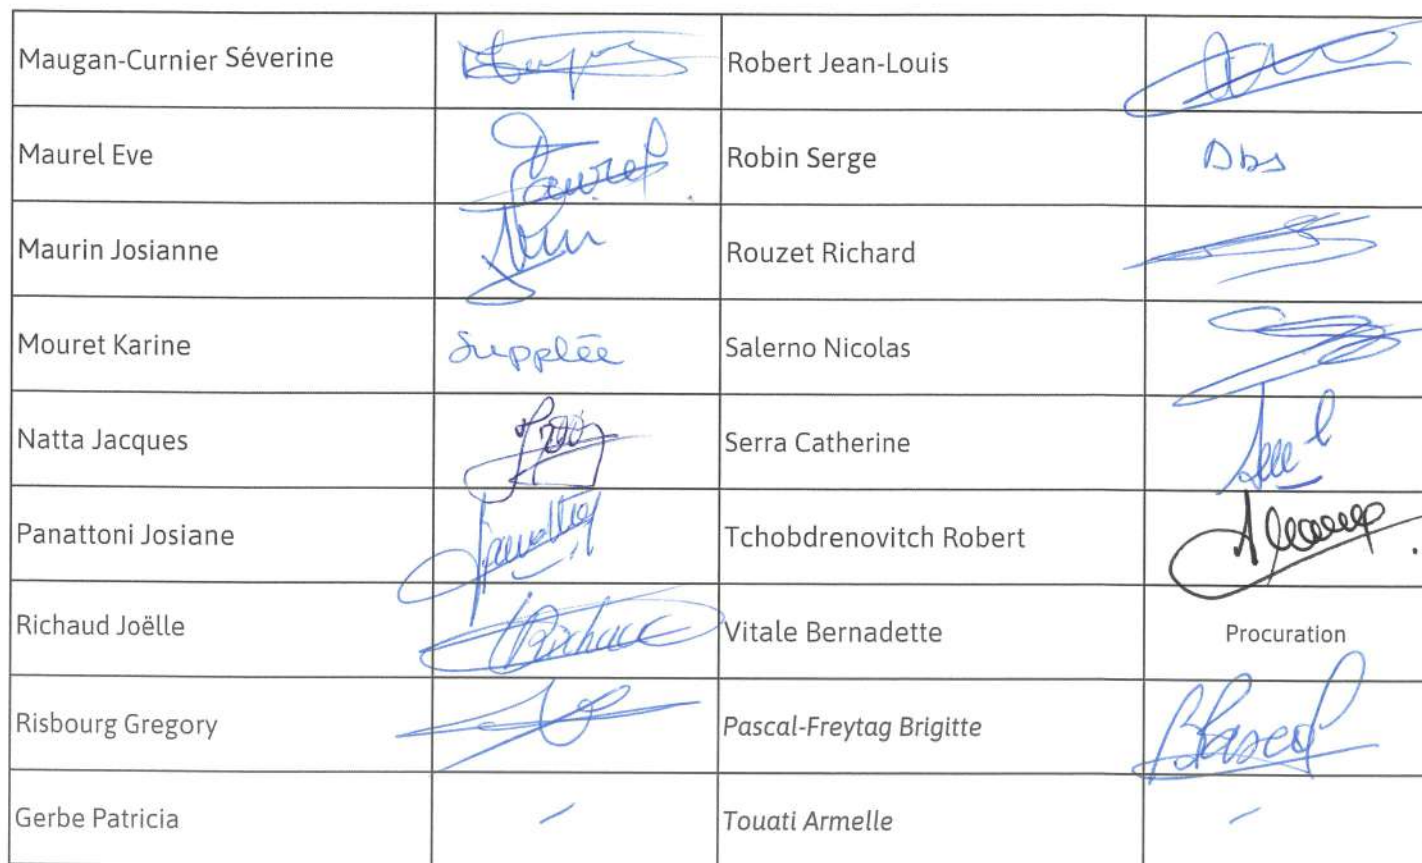 Maugan-Curnier Séverine
Robert Jean-Louis
Maurel Eve
Maurel
Robin Serge
Abs
Maurin Josianne
Rouzet Richard
Mouret Karine
Supplée
Salerno Nicolas
Natta Jacques
Serra Catherine
Panattoni Josiane
Tchobdrenovitch Robert
Richaud Joëlle
Richaud
Vitale Bernadette
Procuration
Risbourg Gregory
Pascal-Freytag Brigitte
Gerbe Patricia
-
Touati Armelle
-